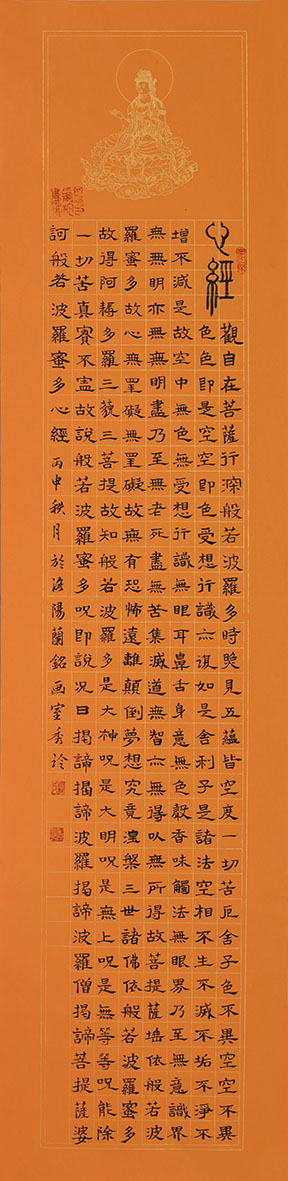 心經
觀自在菩薩行深般若波羅多時照見五蘊皆空度一切苦厄舍子色不異空空不異
色色即是空空即色受想行識亦復如是舍利子是諸法空相不生不滅不垢不淨不
增不減是故空中無色無受想行識無眼耳鼻舌身意無色聲香味觸法無眼界乃至無意識界
無無明亦無無明盡乃至無老死盡無苦集滅道無智亦無得以無所得故菩提薩埵依般若波
羅蜜多故心無罣礙無罣礙故無有恐怖遠離顛倒夢想究竟涅槃三世諸佛依般若波羅蜜多
故得阿耨多羅三藐三菩提故知般若波羅多是大神咒是大明咒是無上咒是無等等咒能除
一切苦真實不虛故說般若波羅蜜多咒即說咒曰揭諦揭諦波羅揭諦波羅僧揭諦菩提薩婆
訶般若波羅蜜多心經 丙申秋月於洛陽蘭銘画室秀玲